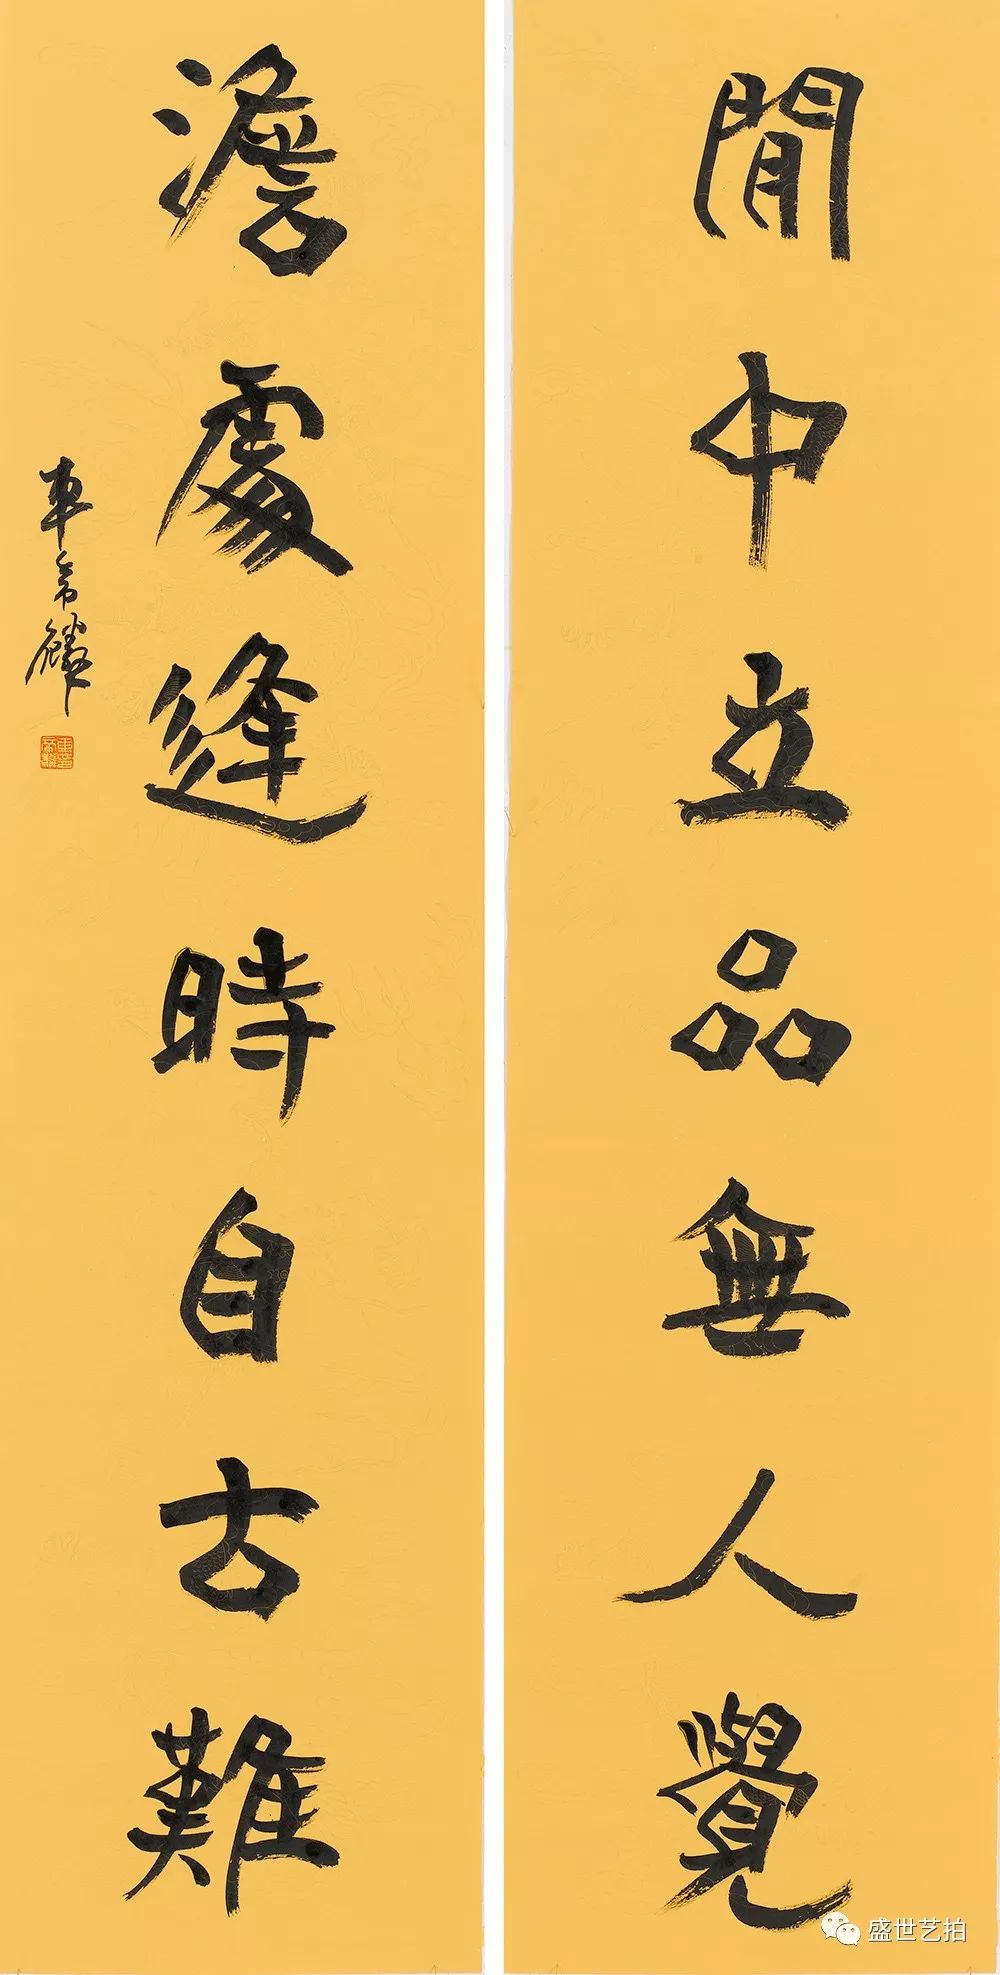 閒中立品無人覺
澹處逢時自古難
車
盛世艺拍